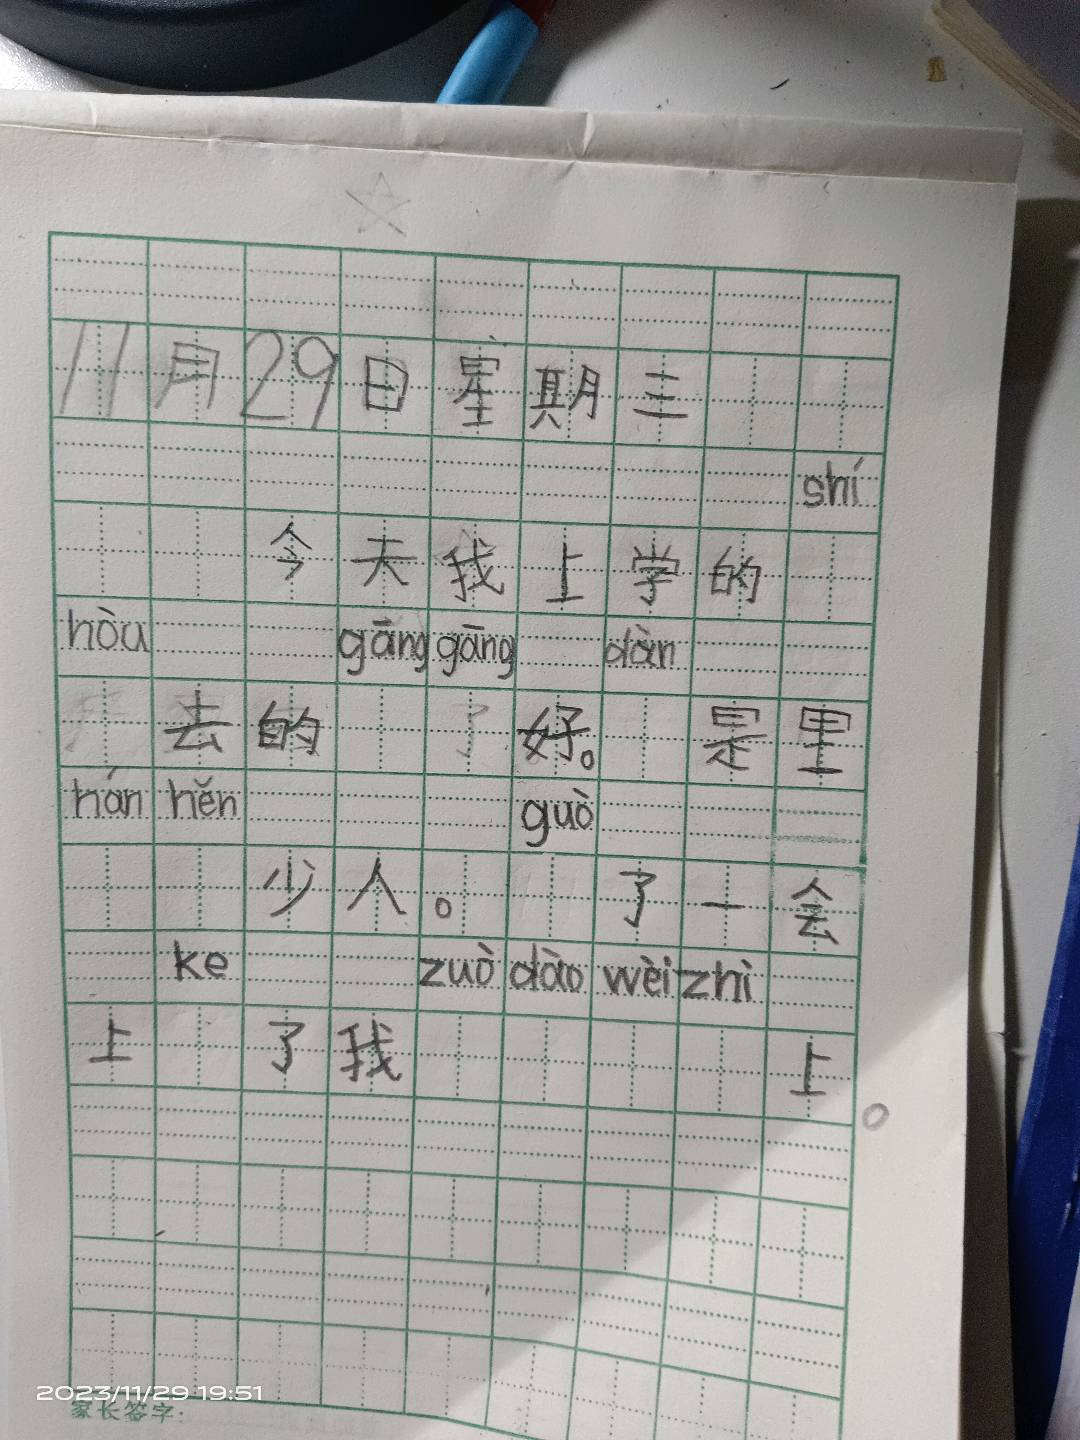 11月29日星期三
shí
今天我上学的
hòu gāng gāng dàn
去的了好。是里
hán hěn guò
少人。了一会
ke zuò dào wèi zhì
上了我上。
2023/11/29 19:51
家长签字: